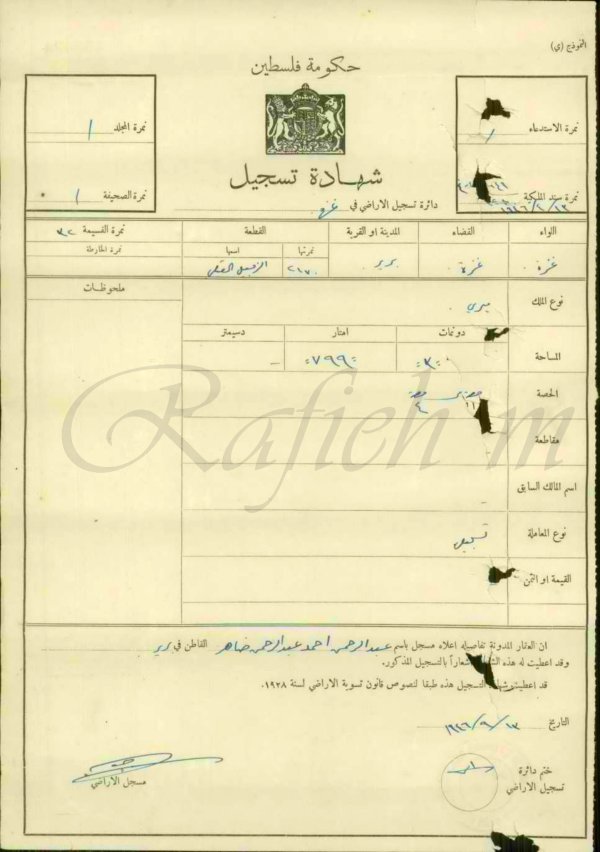 النموذج (ي)
حكومة فلسطين
نمرة الاستدعاء
نمرة المجلد ١
شهادة تسجيل
نمرة سند الملكية
نمرة الصحيفة ١
دائرة تسجيل الاراضي في غزة
اللواء القضاء المدينة او القرية القطعة نمرة القسيمة ٣٢
نمرتها اسمها نمرة الخارطة
غزة غزة برير ٢١٧٠
نوع الملك ميري ملحوظات
دونمات امتار دسيمتر
المساحة ٣ ٧٩٩ -
الحصة
مقاطعة
اسم المالك السابق -
نوع المعاملة تسجيل
القيمة او الثمن
ان العقار المدونة تفاصيله اعلاه مسجل باسم عبد الرحمن احمد عبد الرحمن ضاهر القاطن في برير
وقد اعطيت له هذه اشعاراً بالتسجيل المذكور.
قد اعطيت شهادة التسجيل هذه طبقا لنصوص قانون تسوية الاراضي لسنة ١٩٢٨.
التاريخ ١٣/٩/١٩٤٦
ختم دائرة
تسجيل الاراضي
مسجل الاراضي
Rafieh m